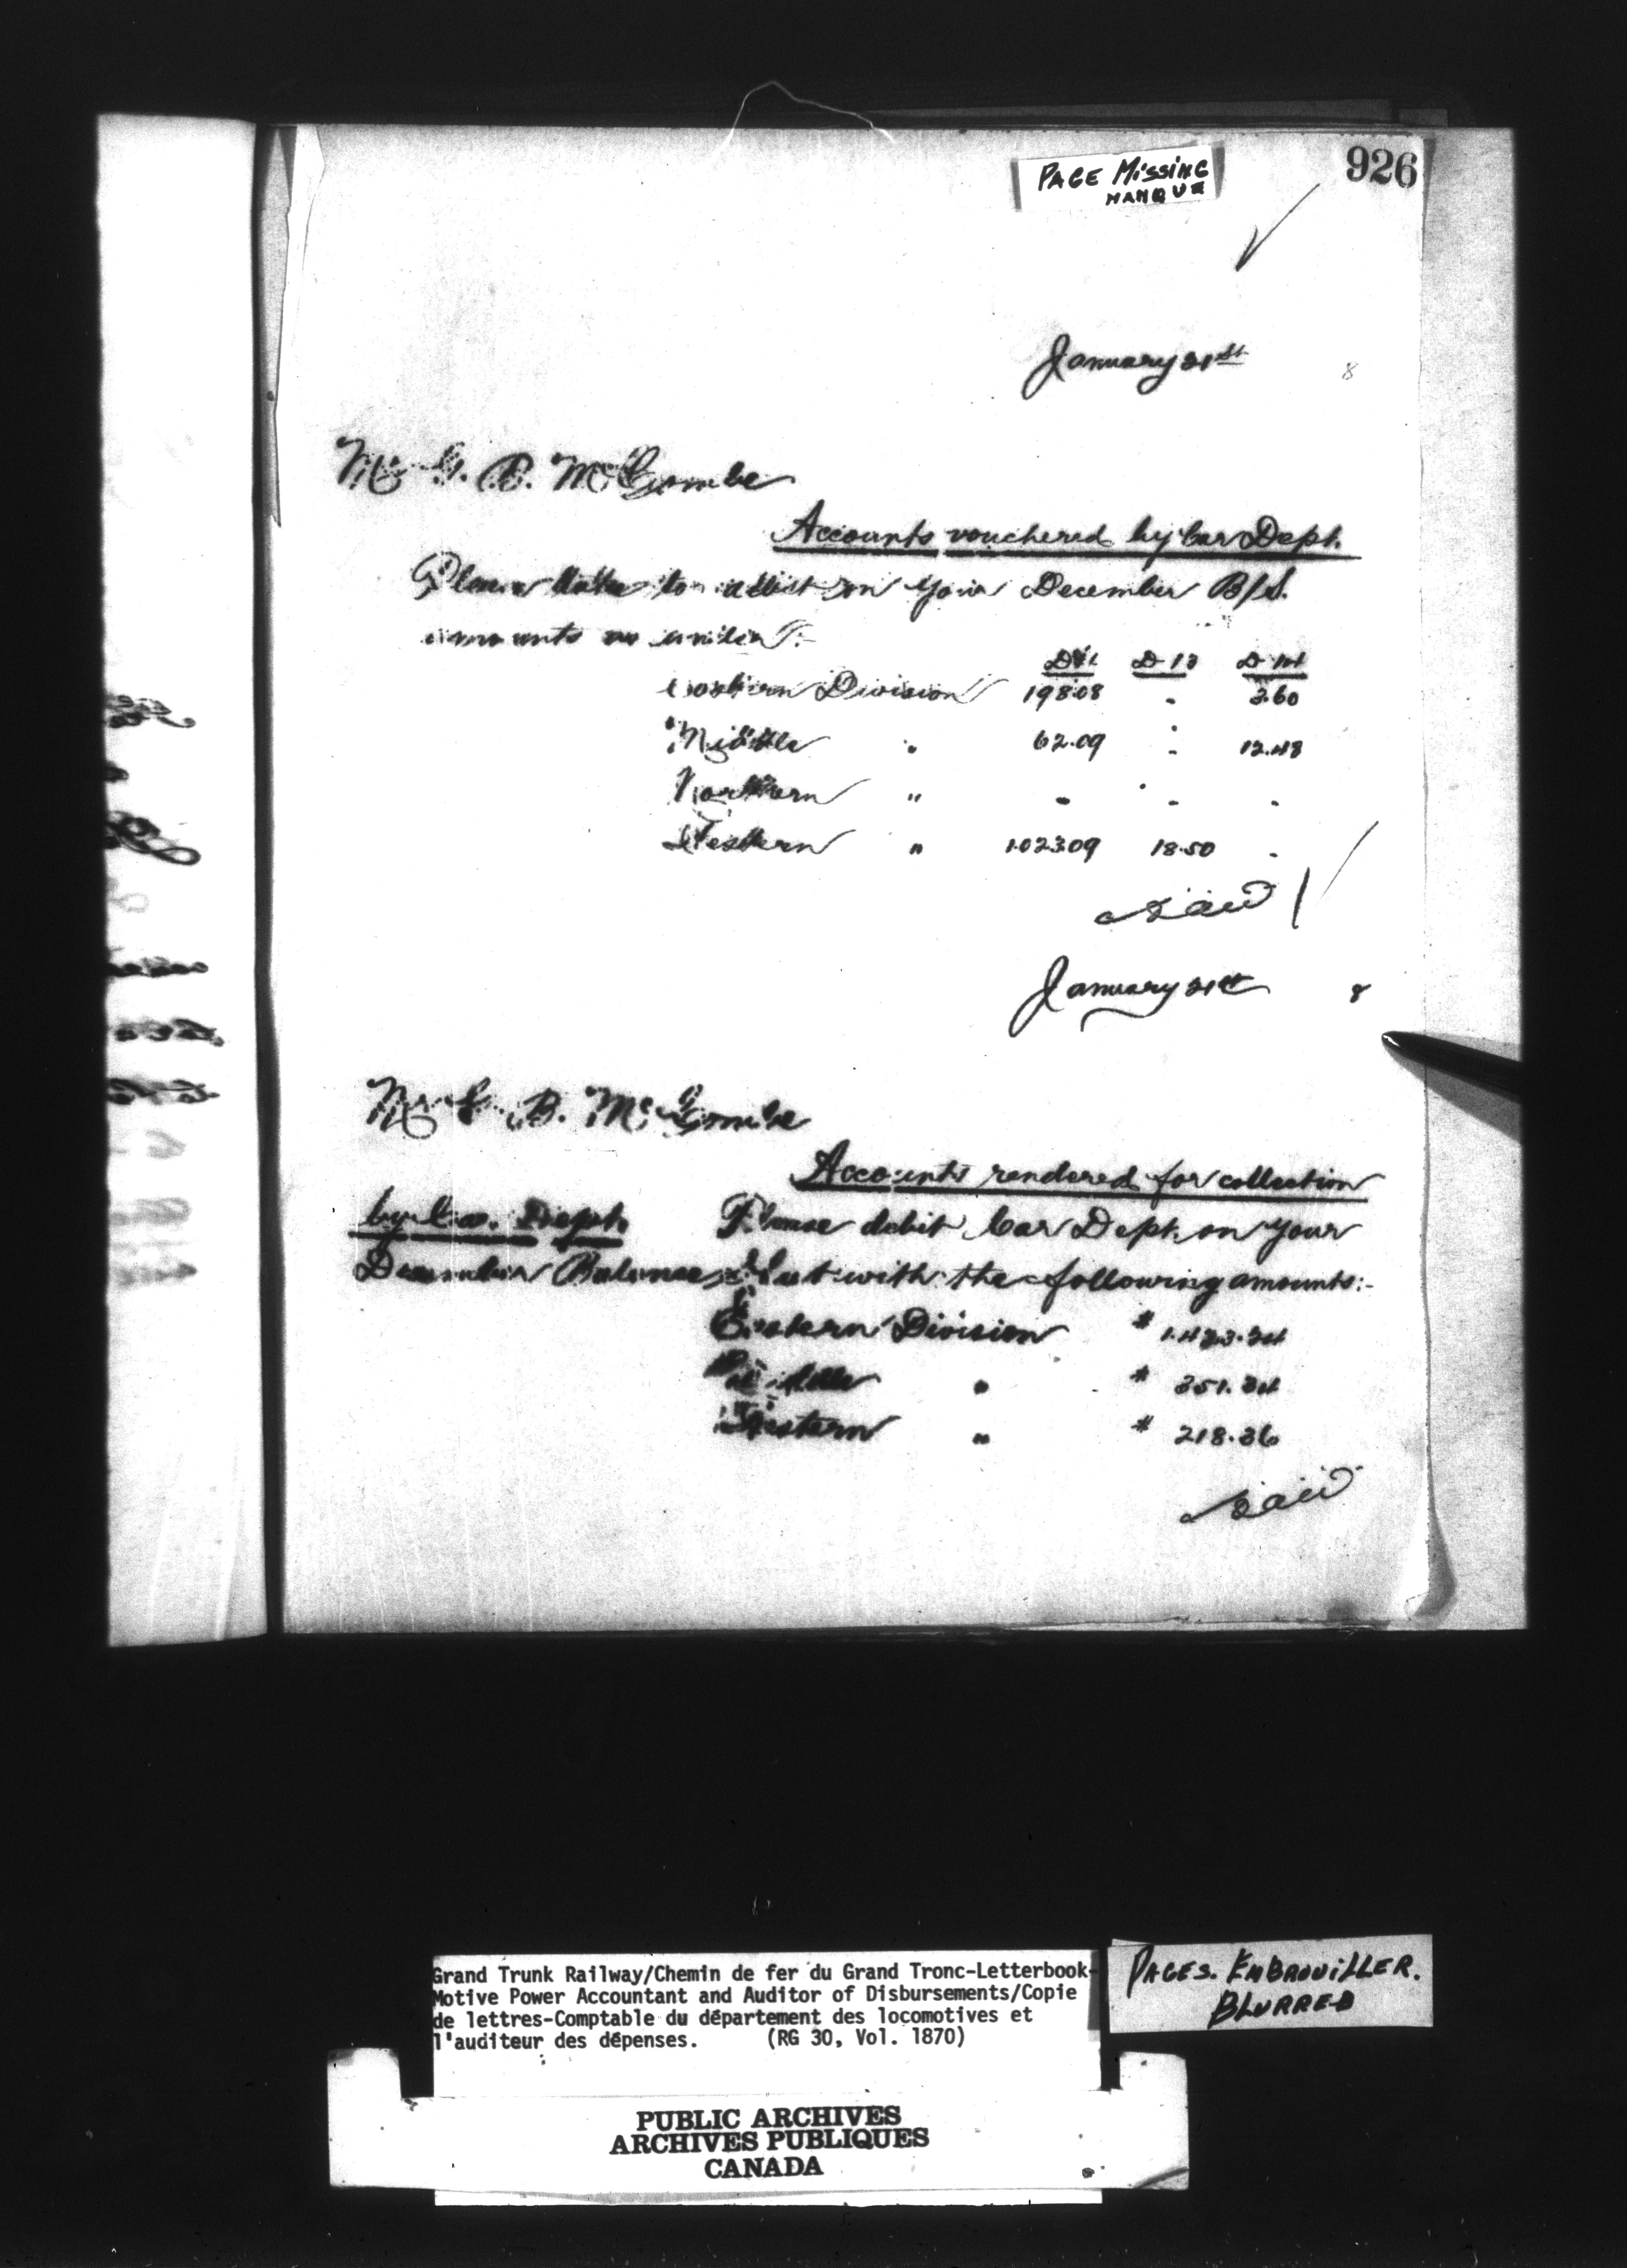 926
PAGE MISSING
MANQUE
January 21st 8
Mr G. B. McCombe
Accounts vouchered by Car Dept.
Please take to on your December B/S.
amounts as under:-
D 13 D 14
Eastern Division 198.08 - 3.60
Middle " 62.09 - 12.48
Northern " - - -
Western " 1023.09 18.50 -
January 21st 8
Mr G. B. McCombe
Accounts rendered for collection
by Car Dept. Please debit Car Dept. on your
December Balance Sheet with the following amounts:-
Eastern Division $ 1.433.34
Middle " $ 351.34
Western " $ 218.36
Grand Trunk Railway/Chemin de fer du Grand Tronc-Letterbook-
Motive Power Accountant and Auditor of Disbursements/Copie
de lettres-Comptable du département des locomotives et
l'auditeur des dépenses. (RG 30, Vol. 1870)
PAGES. EMBROUILLER.
BLURRED
PUBLIC ARCHIVES
ARCHIVES PUBLIQUES
CANADA